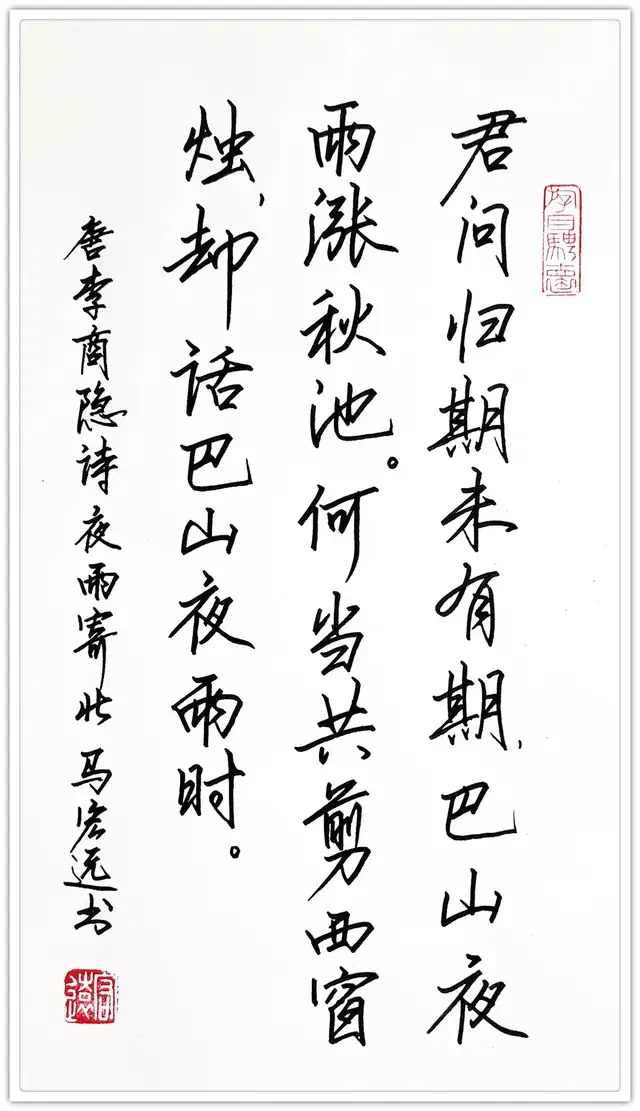 君问归期未有期,巴山夜
雨涨秋池。何当共剪西窗
烛,却话巴山夜雨时。
唐李商隐诗夜雨寄北 马宏远书
宏远